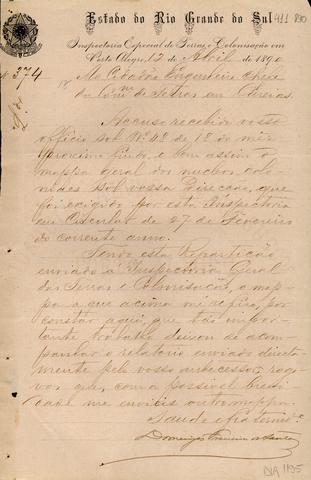 Estado do Rio Grande do Sul
411 280
Inspectoria Especial de Terras e Colonisação em
Porto Alegre, 12 de Abril de 1890
Nº 374
Ao Cidadão Engenheiro Chefe
da Comm de Terras em
Accuso recebido vosso
officio sob Nº 48 de 18 do mez
proximo findo, e bem assim o
mappa geral dos nucleos colo-
niaes sob vossa Direcção, que
foi exigido por esta Inspectoria
em Circular de 27 de Fevereiro
do corrente anno.
Tendo esta Repartição
enviado á Inspectoria Geral
das Terras e Colonisação, o map-
pa a que acima me refiro, por
constar aqui, que tão impor-
tante trabalho deixou de acom-
panhar o relatorio enviado directa-
mente pelo vosso antecessor, rogo-
vos que, com a possivel brevi-
dade me envieis outro mappa.
Saude e fraternide
Domingos
1195